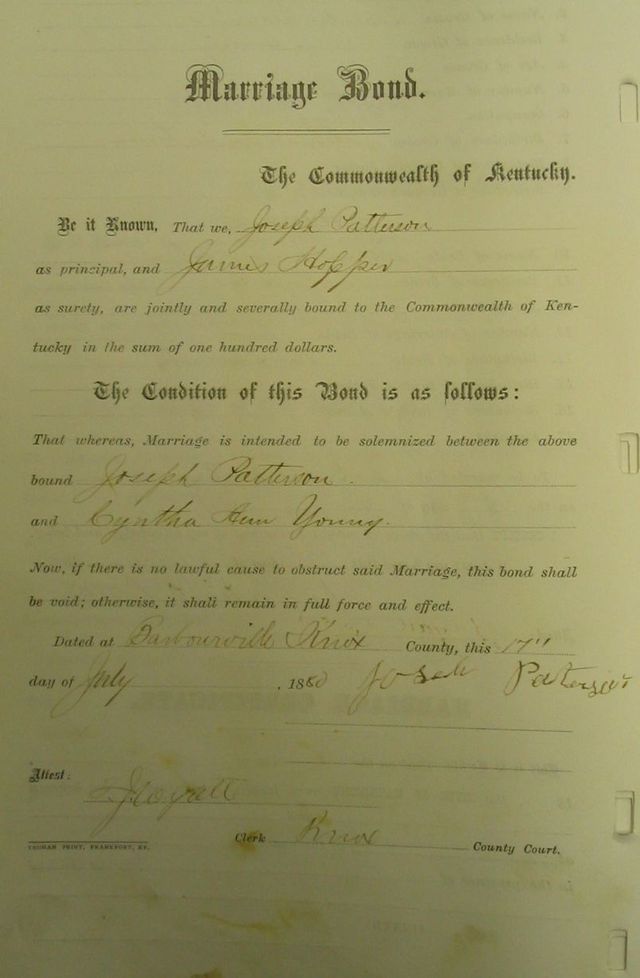 Marriage Bond.
The Commonwealth of Kentucky.
Be it Known, That we, Joseph Patterson
as principal, and James Hopper
as surety, are jointly and severally bound to the Commonwealth of Ken-
tucky in the sum of one hundred dollars.
The Condition of this Bond is as follows:
That whereas, Marriage is intended to be solemnized between the above
bound Joseph Patterson.
and Cyntha Ann Young.
Now, if there is no lawful cause to obstruct said Marriage, this bond shall
be void; otherwise, it shall remain in full force and effect.
Dated at Barbourville Knox County, this 17"
day of July, 1880 Joseh
Attest:
Clerk Knox County Court.
YEOMAN PRINT, FRANKFORT, KY.